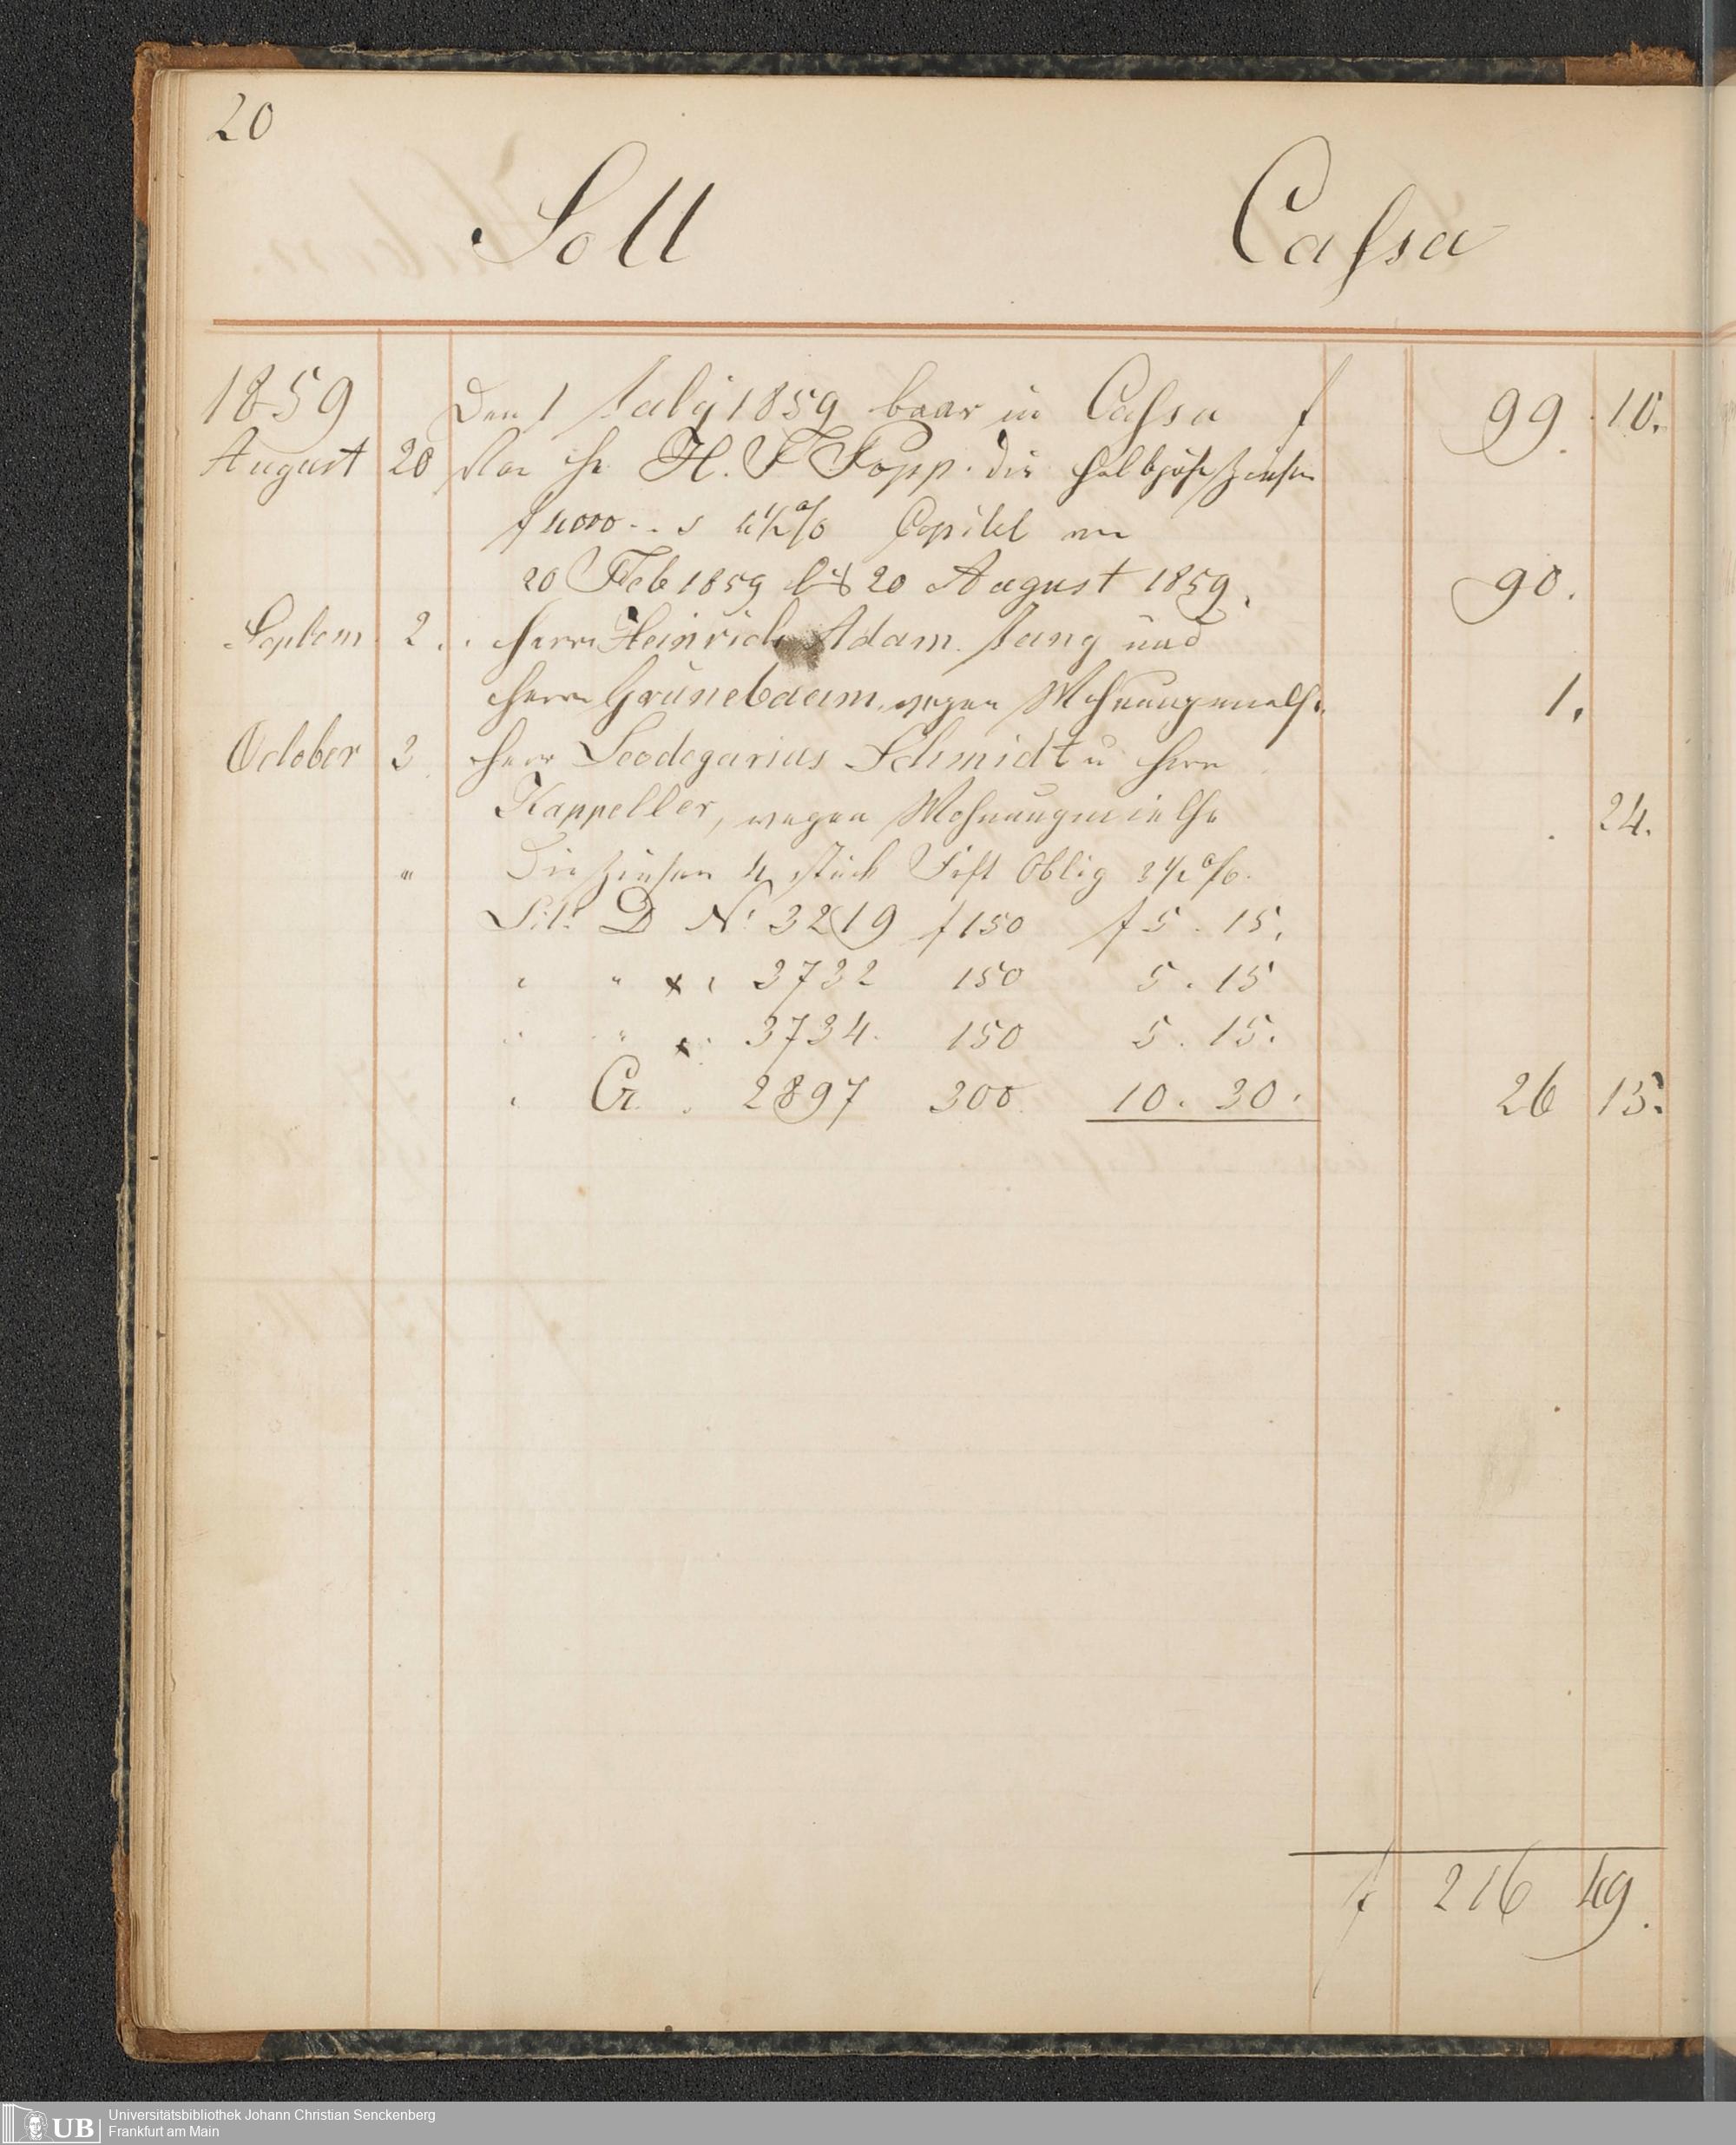 20
Soll Cassa
1859 Den 1 July 1859 baar in Cassa f 99. 10.
August 20 Von H. H. F Popp. die halbjähr Zinsen
f 4000 . . à 4½ % Capital von
20 Feb 1859 bis 20 August 1859. 90.
Septem 2. Herrn Heinrich Adam Jung und
Herrn Grünebaum, wegen Wohnungmieth. 1.
October 3 Herr Leodegarius Schmidt u Herrn
Kappeller, wegen Wohnungmiethe . 24.
" Die Zinsen 4 Stück Oblig 3½ %.
Lit. D No 3219 f 150 f 5. 15.
" " " 3732 150 5. 15
" " " 3734. 150 5. 15.
" G. " 2897 300 10. 30. 26 15.
f 216 49.
Universitätsbibliothek Johann Christian Senckenberg
Frankfurt am Main
UB